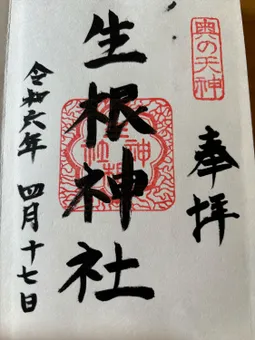 奥の天神
奉拝
生根神社
令和六年 四月十七日